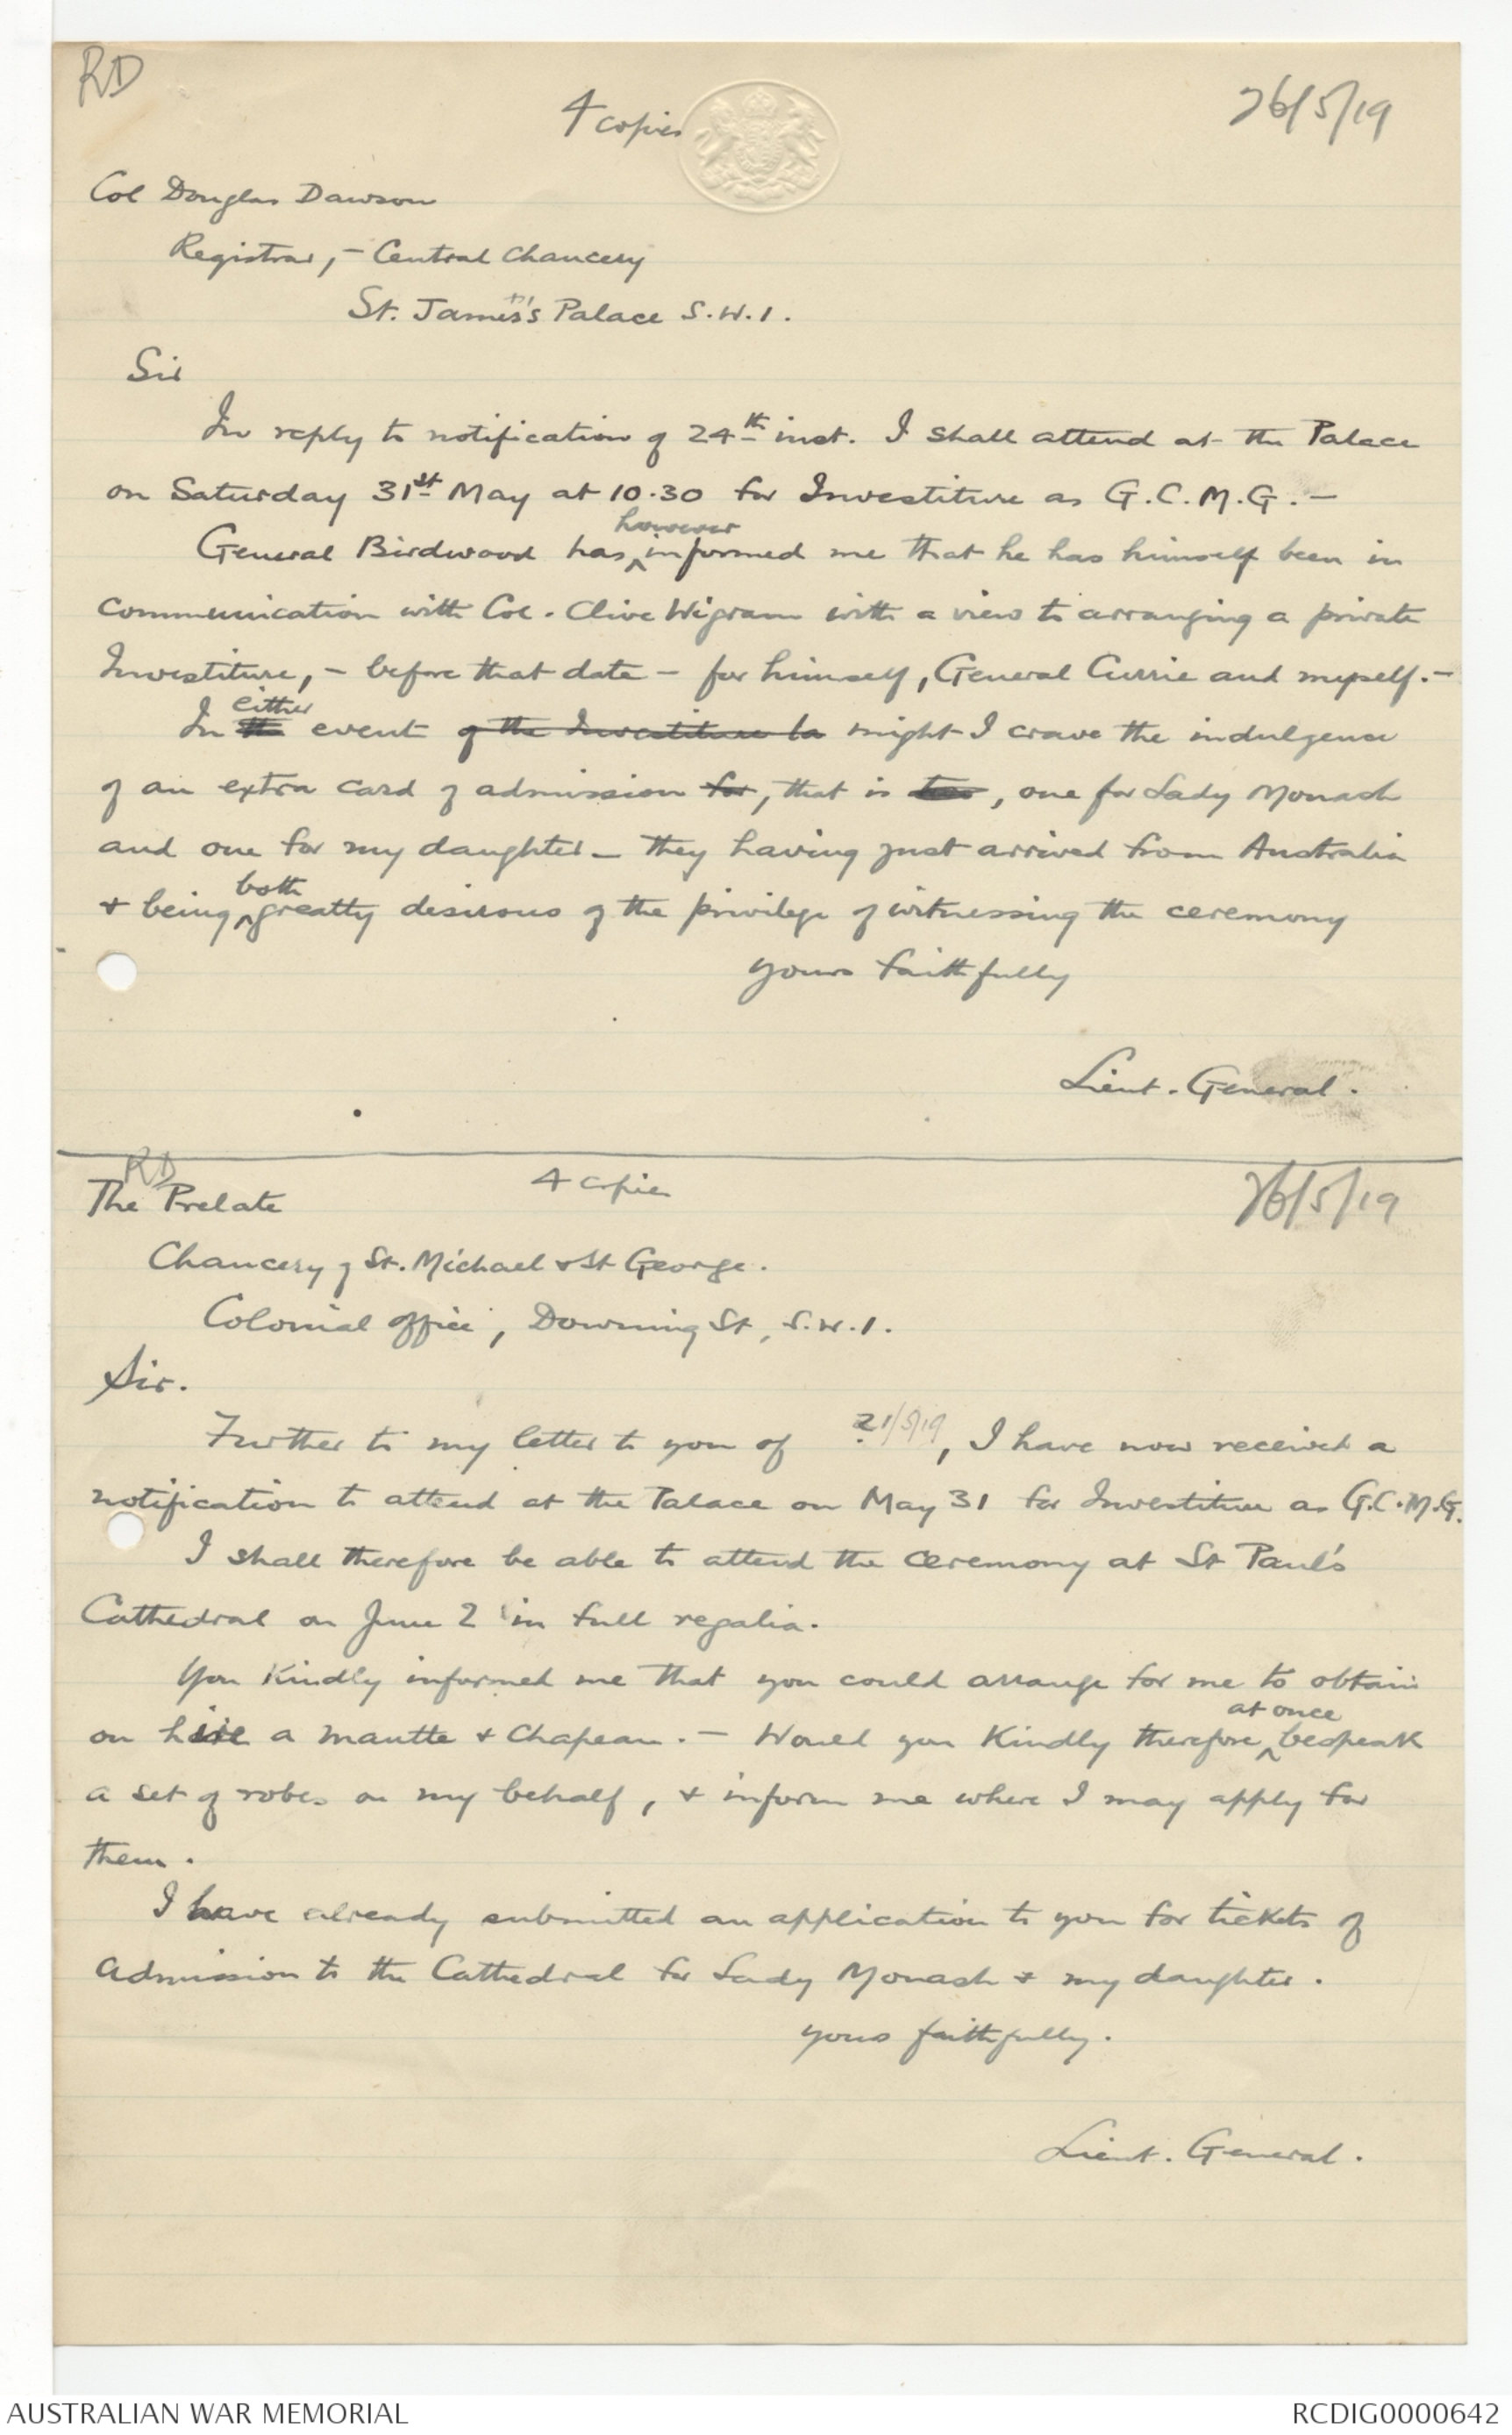 RD
4 copies
26/5/19
Col Douglas Dawson
Registrar, - Central Chancery
St. James's Palace S.W.1.
Sir
In reply to notification of 24th inst. I shall attend at the Palace
on Saturday 31st May at 10.30 for Investiture as G.C.M.G. -
General Birdwood has ^however informed me that he has himself been in
communication with Col. Clive Wigram with a view to arranging a private
Investiture, - before that date - for himself, General Currie and myself. -
In the either event of the Investiture be might I crave the indulgence
of an extra card of admission for, that is two, one for Lady Monash
and one for my daughter - they having just arrived from Australia
& being ^both greatly desirous of the privilege of witnessing the ceremony
yours faithfully
Lieut. General.
RD
4 copies
26/5/19
The Prelate
Chancery of St. Michael & St George.
Colonial Office, Downing St, S.W.1.
Sir.
Further to my letter to you of 21/5/19, I have now received a
notification to attend at the Palace on May 31 for Investiture as G.C.M.G.
I shall therefore be able to attend the ceremony at St Paul's
Cathedral on June 2 in full regalia.
You kindly informed me that you could arrange for me to obtain
on hire a mantle & Chapeau. - Would you kindly therefore ^at once bespeak
a set of robes on my behalf, & inform me where I may apply for
them.
I have already submitted an application to you for tickets of
admission to the Cathedral for Lady Monash & my daughter.
yours faithfully.
Lieut. General.
AUSTRALIAN WAR MEMORIAL
RCDIG0000642